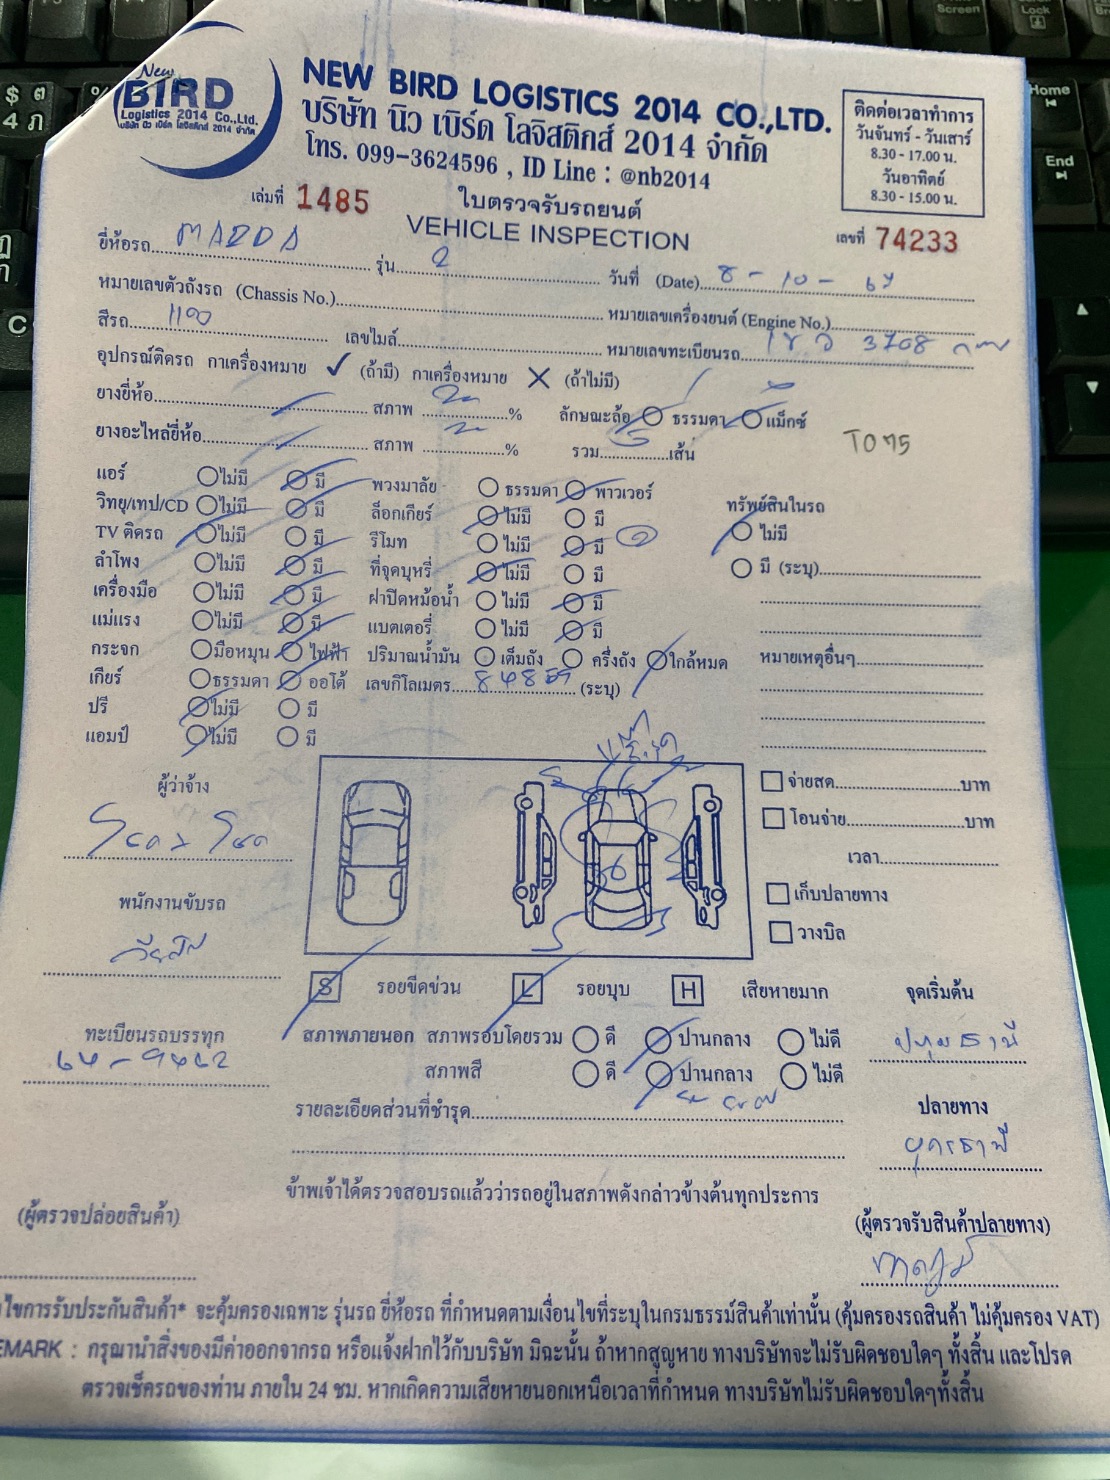 New
BIRD
Logistics 2014 Co.,Ltd.
บริษัท นิว เบิร์ด โลจิสติกส์ 2014 จำกัด
NEW BIRD LOGISTICS 2014 CO.,LTD.
บริษัท นิว เบิร์ด โลจิสติกส์ 2014 จำกัด
โทร. 099-3624596 , ID Line : @nb2014
ติดต่อเวลาทำการ
วันจันทร์ - วันเสาร์
8.30 - 17.00 น.
วันอาทิตย์
8.30 - 15.00 น.
เล่มที่ 1485
ใบตรวจรับรถยนต์
VEHICLE INSPECTION
เลขที่ 74233
ยี่ห้อรถ MAZDA รุ่น 2 วันที่ (Date) 8 - 10 - 67
หมายเลขตัวถังรถ (Chassis No.) หมายเลขเครื่องยนต์ (Engine No.)
สีรถ เลขไมล์ หมายเลขทะเบียนรถ 3708 กทม
อุปกรณ์ติดรถ กาเครื่องหมาย ✓ (ถ้ามี) กาเครื่องหมาย ✕ (ถ้าไม่มี)
ยางยี่ห้อ สภาพ % ลักษณะล้อ ธรรมดา แม็กซ์
ยางอะไหล่ยี่ห้อ สภาพ % รวม 5 เส้น
TO75
แอร์ ไม่มี มี พวงมาลัย ธรรมดา พาวเวอร์
วิทยุ/เทป/CD ไม่มี มี ล็อกเกียร์ ไม่มี มี ทรัพย์สินในรถ
TV ติดรถ ไม่มี มี รีโมท ไม่มี มี ไม่มี
ลำโพง ไม่มี มี ที่จุดบุหรี่ ไม่มี มี มี (ระบุ)
เครื่องมือ ไม่มี มี ฝาปิดหม้อน้ำ ไม่มี มี
แม่แรง ไม่มี มี แบตเตอรี่ ไม่มี มี
กระจก มือหมุน ไฟฟ้า ปริมาณน้ำมัน เต็มถัง ครึ่งถัง ใกล้หมด หมายเหตุอื่นๆ
เกียร์ ธรรมดา ออโต้ เลขกิโลเมตร (ระบุ)
ปรี ไม่มี มี
แอมป์ ไม่มี มี
ผู้ว่าจ้าง
จ่ายสด บาท
โอนจ่าย บาท
เวลา
พนักงานขับรถ
เก็บปลายทาง
วางบิล
S รอยขีดข่วน L รอยบุบ H เสียหายมาก จุดเริ่มต้น
ทะเบียนรถบรรทุก สภาพภายนอก สภาพรอบโดยรวม ดี ปานกลาง ไม่ดี ปทุมธานี
สภาพสี ดี ปานกลาง ไม่ดี
รายละเอียดส่วนที่ชำรุด ปลายทาง
ข้าพเจ้าได้ตรวจสอบรถแล้วว่ารถอยู่ในสภาพดังกล่าวข้างต้นทุกประการ
(ผู้ตรวจปล่อยสินค้า) (ผู้ตรวจรับสินค้าปลายทาง)
ไขการรับประกันสินค้า* จะคุ้มครองเฉพาะ รุ่นรถ ยี่ห้อรถ ที่กำหนดตามเงื่อนไขที่ระบุในกรมธรรม์สินค้าเท่านั้น (คุ้มครองรถสินค้า ไม่คุ้มครอง VAT)
EMARK : กรุณานำสิ่งของมีค่าออกจากรถ หรือแจ้งฝากไว้กับบริษัท มิฉะนั้น ถ้าหากสูญหาย ทางบริษัทจะไม่รับผิดชอบใดๆ ทั้งสิ้น และโปรด
ตรวจเช็ครถของท่าน ภายใน 24 ชม. หากเกิดความเสียหายนอกเหนือเวลาที่กำหนด ทางบริษัทไม่รับผิดชอบใดๆทั้งสิ้น